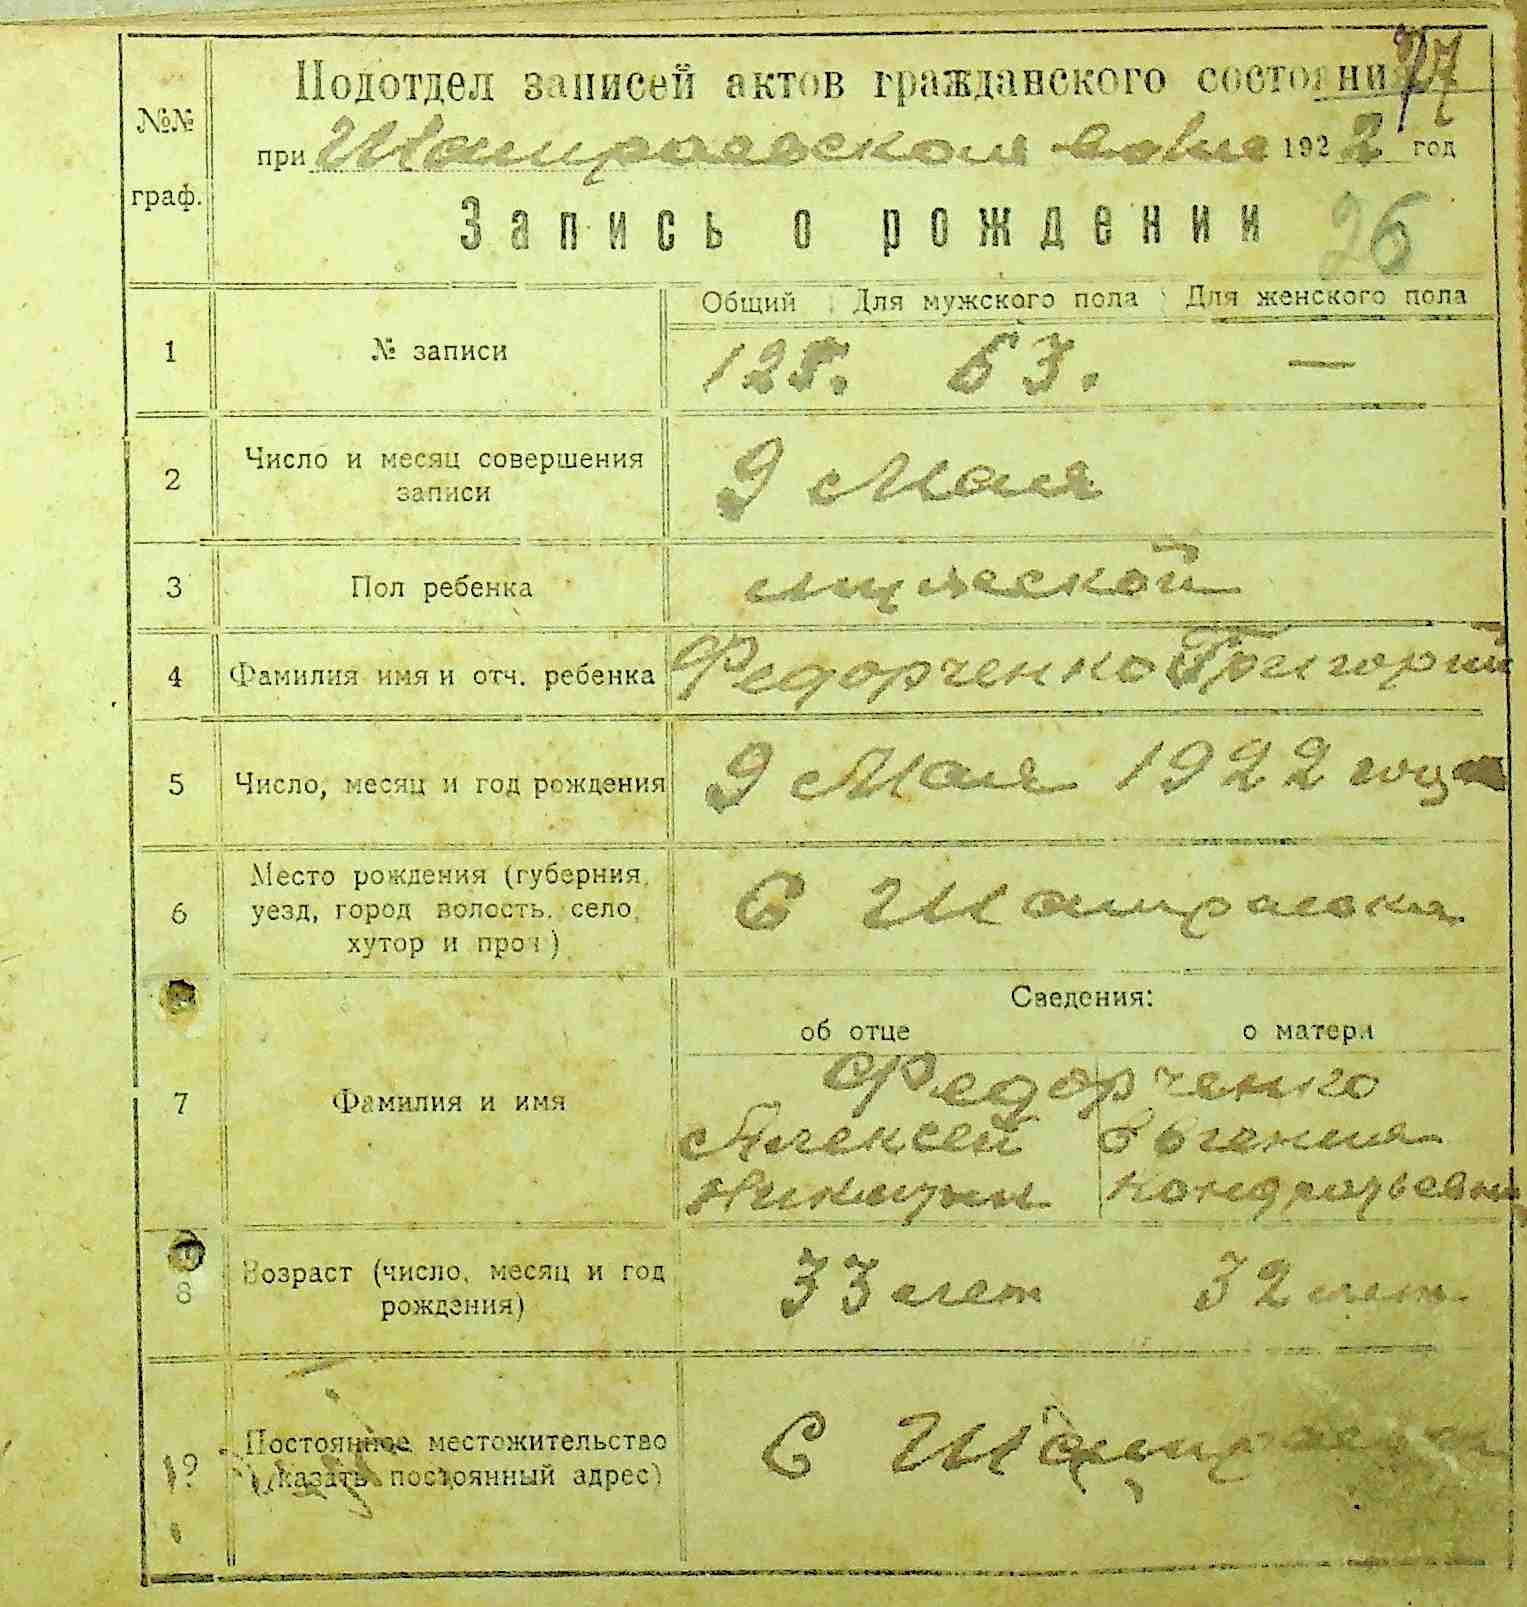 77
№№
граф.
Подотдел записей актов гражданского состояния
при Шатраевском волие 1922 год
Запись о рождении
26
Общий Для мужского пола Для женского пола
1 № записи 125. 63. —
2 Число и месяц совершения
записи
9 Мая
3 Пол ребенка мужеской
4 Фамилия имя и отч. ребенка Федорченко Григорий
5 Число, месяц и год рождения 9 Мая 1922 года
6 Место рождения (губерния,
уезд, город волость, село,
хутор и проч)
С
Сведения:
об отце о матери
7 Фамилия и имя
Федорченко
Алексей Евгения
Никитин Кондратьевна
8 Возраст (число, месяц и год
рождения)
33 лет 32 лет
Постоянное местожительство
(указать постоянный адрес)
С